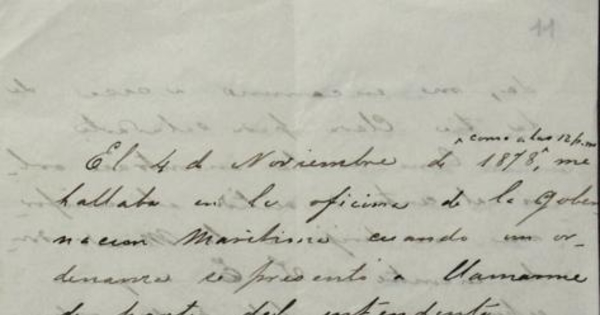 11
^ como a las 12 p.m
El 4 d Noviembre de 1878,^ me
hallaba en la oficina de la Gober-
nacion Maritima cuando un or-
denanza se presentó a llamarme
de parte del intendente